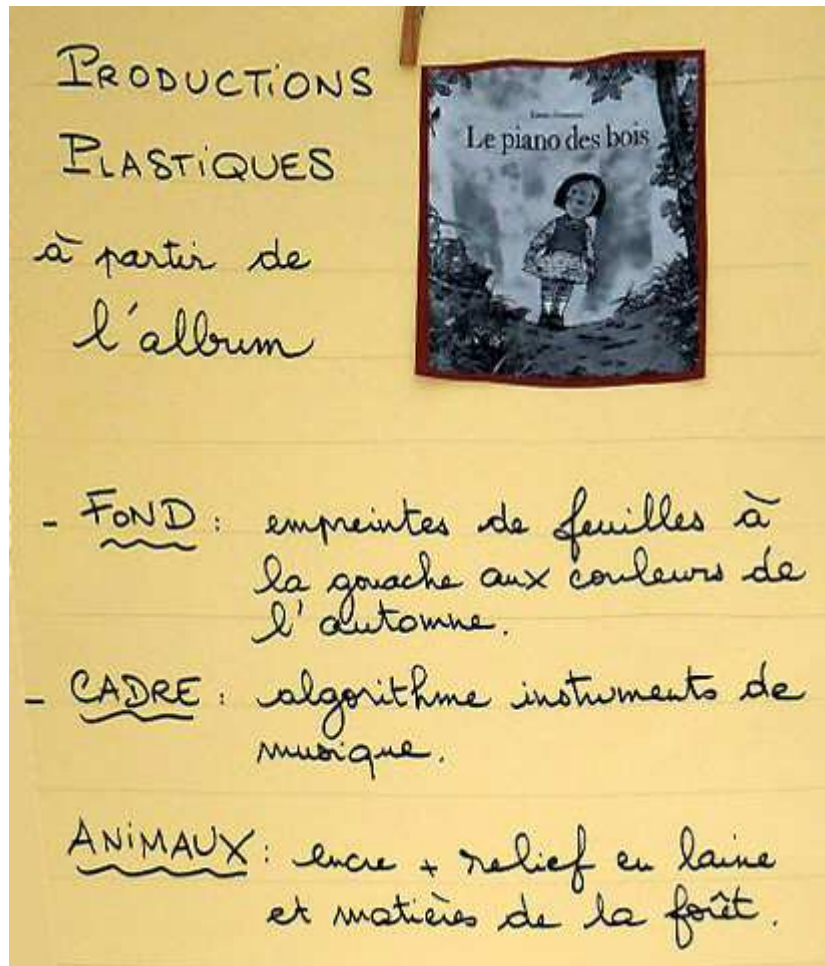 PRODUCTIONS
PLASTIQUES
à partir de
l'album
Le piano des bois
- FOND : empreintes de feuilles à
la gouache aux couleurs de
l'automne.
- CADRE : algorithme instruments de
musique.
ANIMAUX : encre + relief en laine
et matières de la forêt.